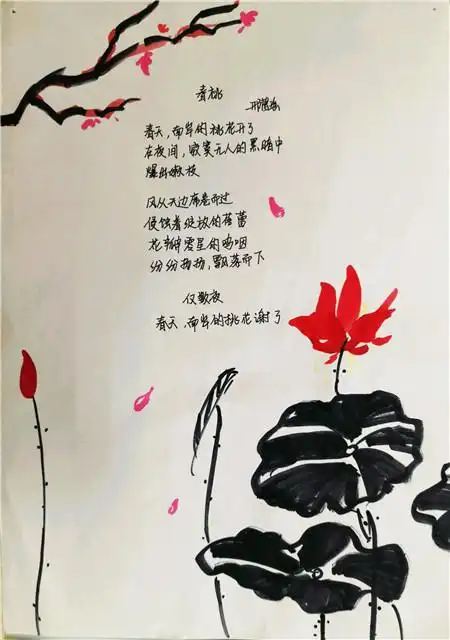 春桃
春天,南岸的桃花开了
在夜间,寂寞无人的黑暗中
爆出嫩枝
风从天边席卷而过
侵蚀着绽放的蓓蕾
花瓣零星的呜咽
纷纷扬扬,飘落而下
仅数夜
春天,南岸的桃花谢了